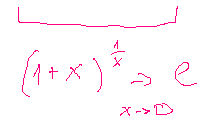 (1+x)^{1/x} → e
x→0